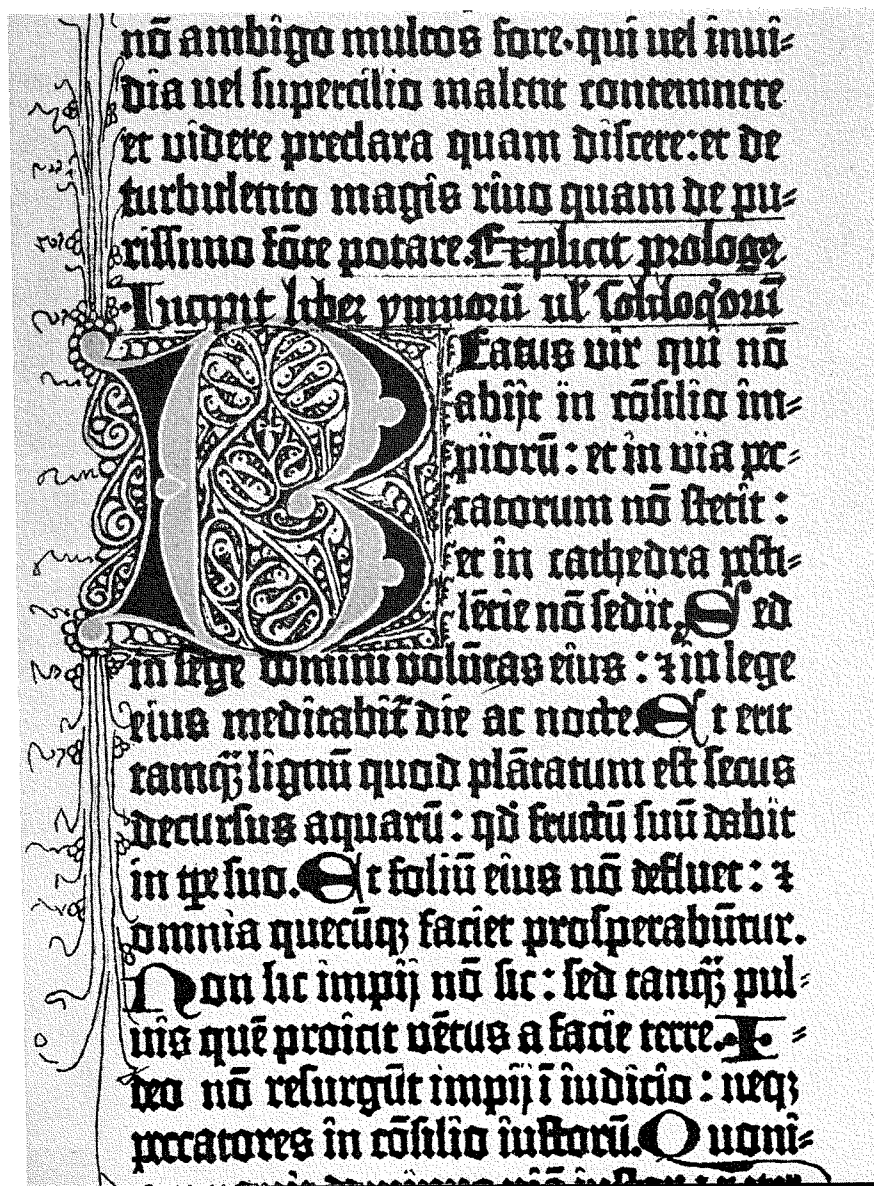 nō ambigo multos fore·qui uel inui⸗
dia uel supercilio malent contemnere
et videre preclara quam discere:et de
turbulento magis riuo quam de pu⸗
rissimo fōte potare.Explicit prologꝰ
Incipit liber ymnorū ul' soliloqorū
Beatus vir qui nō
abijt in cōsilio im⸗
piorū : et in via pec⸗
catorum nō stetit :
et in cathedra pesti⸗
lētie nō sedit. Sed
in lege domini volūtas eius : ⁊ in lege
eius meditabit̄ die ac nocte. Et erit
tamqꝫ lignū quod plātatum est secus
decursus aquarū : qd̄ fructū suū dabit
in tꝑe suo. Et foliū eius nō defluet : ⁊
omnia quecūqꝫ faciet prosperabūtur.
Non sic impij nō sic : sed tanqꝫ pul⸗
uis quē proicit vētus a facie terre. I⸗
deo nō resurgūt impij ī iudicio : neqꝫ
peccatores in cōsilio iustorū. Quoni⸗